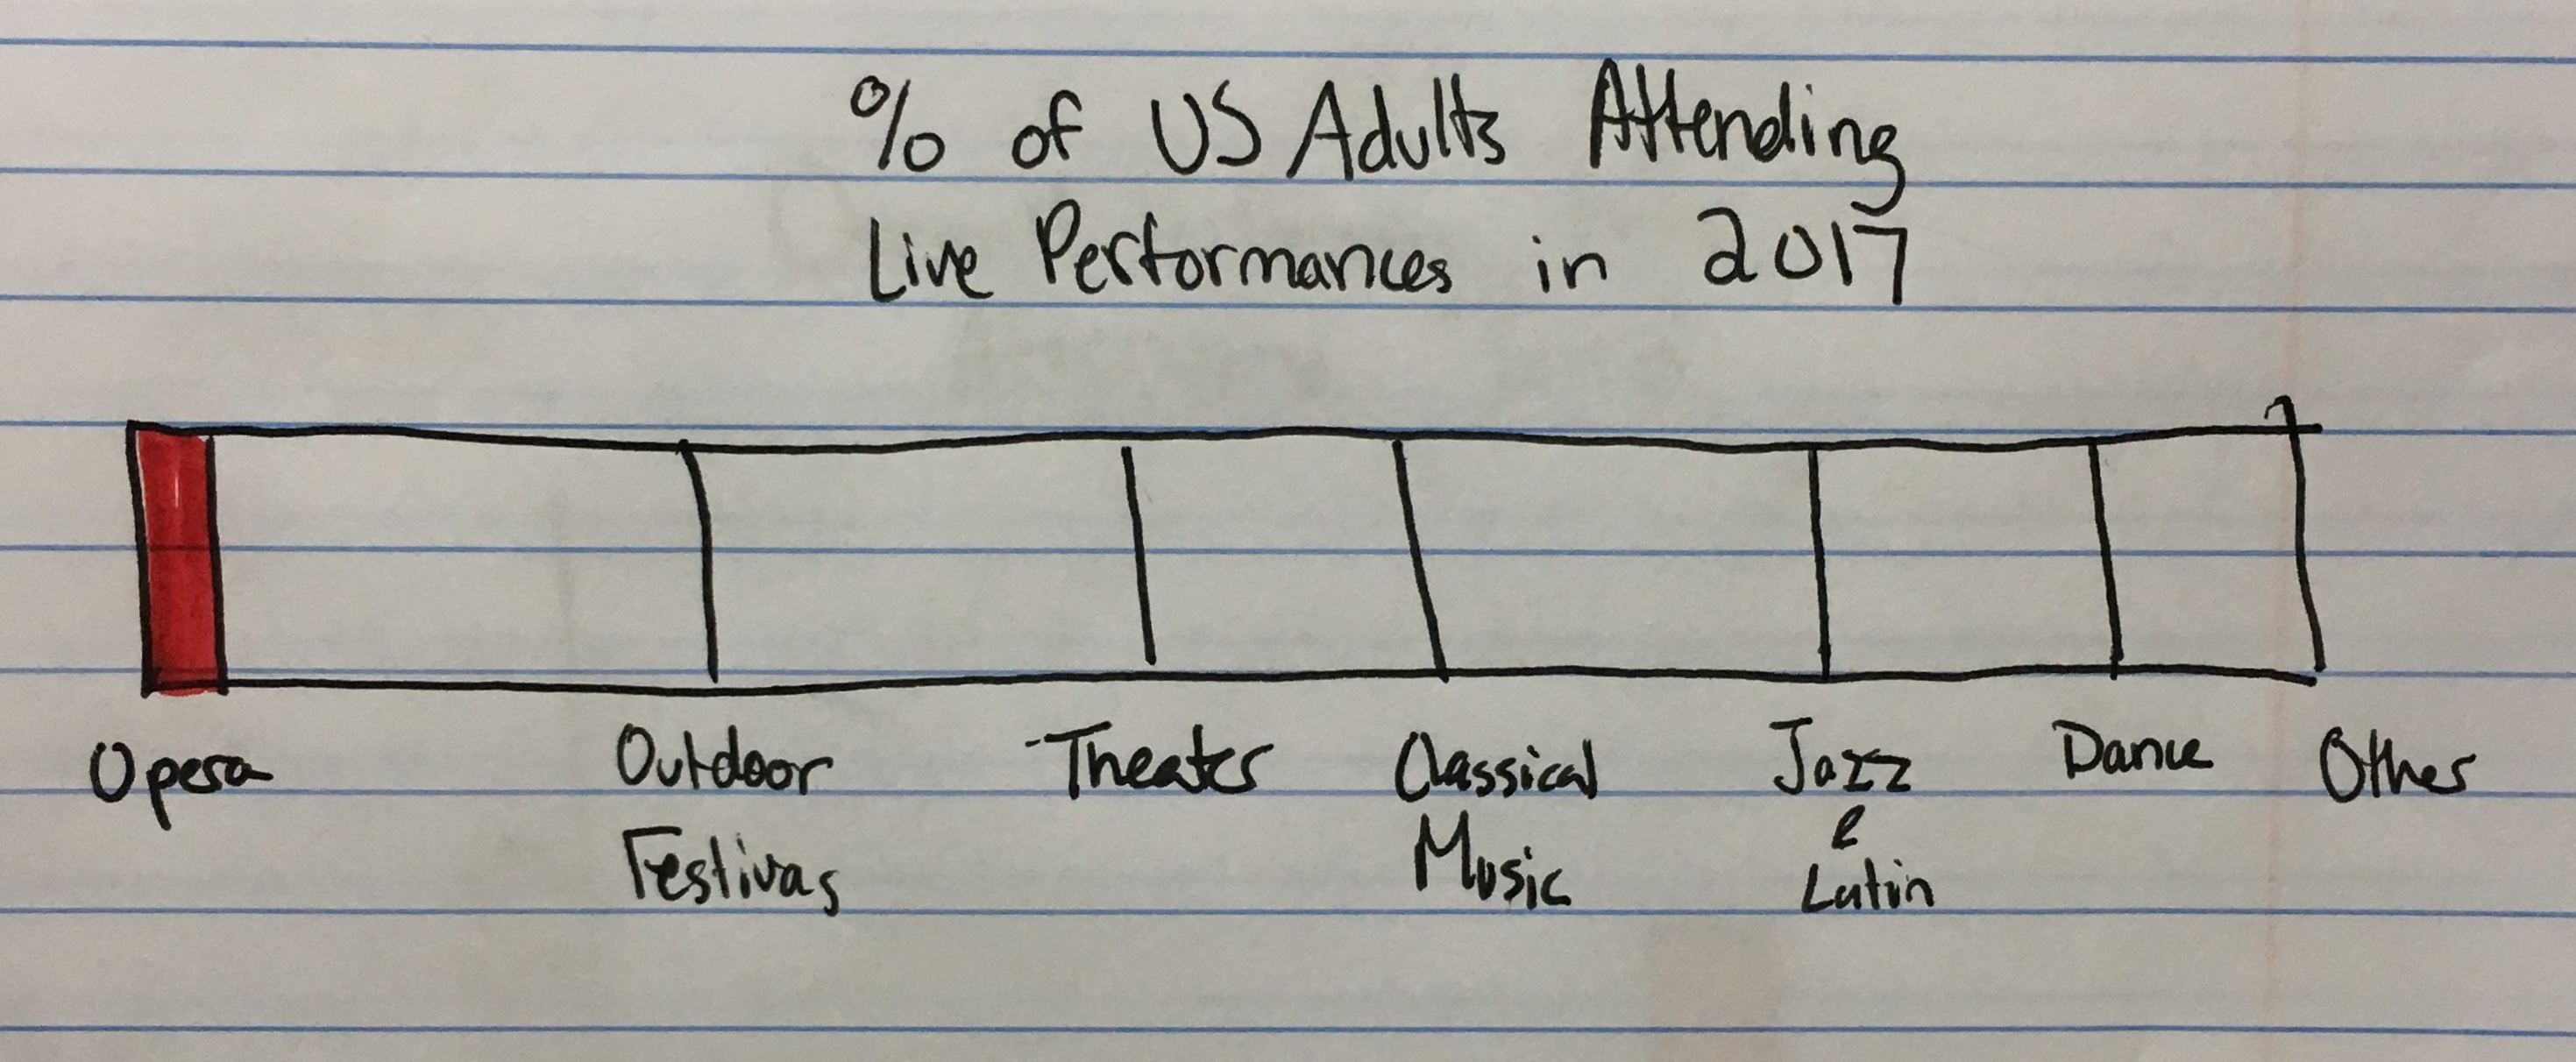 % of US Adults Attending
Live Performances in 2017
Opera
Outdoor
Festivas
Theater
Classical
Music
Jazz
&
Latin
Dance
Other